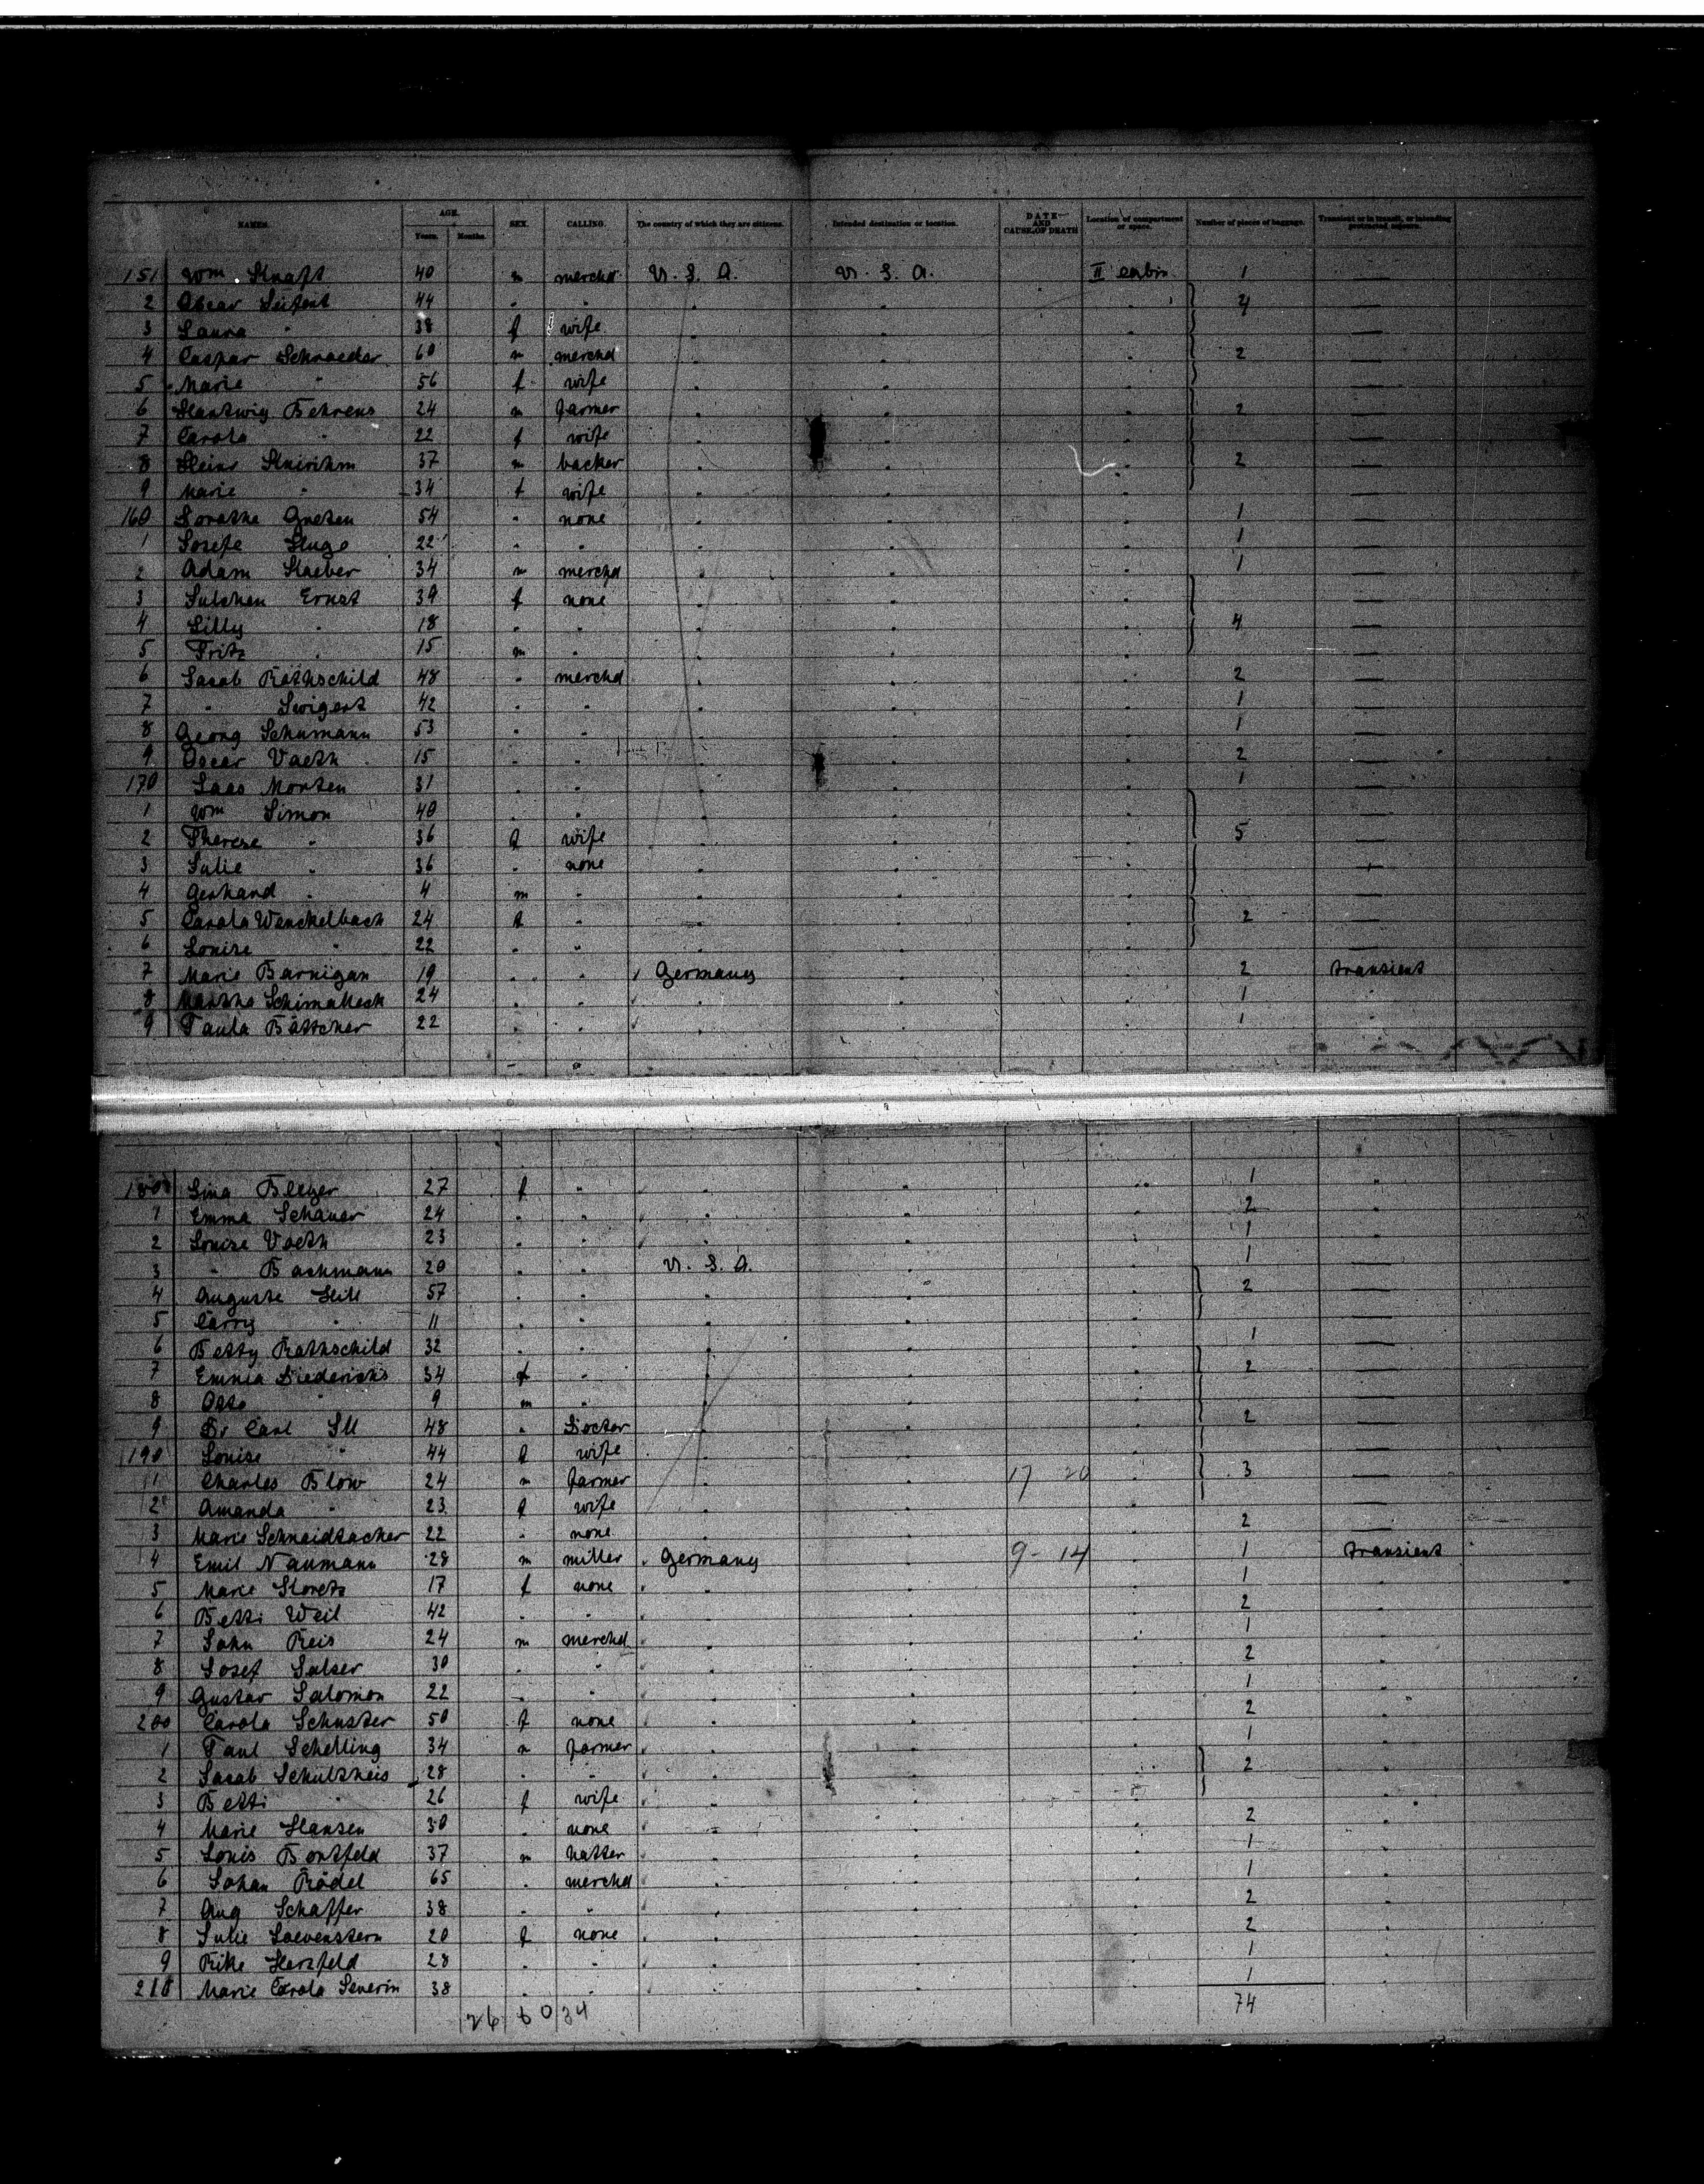 NAMES. AGE. Years. Months. SEX. CALLING. The country of which they are citizens. Intended destination or location. DATE AND CAUSE OF DEATH Location of compartment or space. Number of pieces of baggage. Transient or in transit, or intending protracted sojourn.
151 Wm. 40 m merchd U. S. A. U. S. A. II cabin 1 —
2 Oscar Seifert 44 " " " " " 4 —
3 Laura " 38 f wife " " " —
4 Caspar Schraeder 60 m merchd " " " 2 —
5 Marie " 56 f wife " " " —
6 Hartwig Behrens 24 m farmer " " " 2 —
7 Carola " 22 f wife " " " —
8 Heinr 37 m backer " " " 2 —
9 Marie " 34 f wife " " " —
160 54 " none " " " 1 —
1 Josefe 22 " " " " " 1 —
2 Adam 34 m merchd " " " 1 —
3 Julchen Ernst 39 f none " " " —
4 Lilly " 18 " " " " " 4 —
5 Fritz " 15 m " " " " —
6 Jacob Rothschild 48 " merchd " " " 2 —
7 " Swigert 42 " " " " " 1 —
8 Georg Schumann 53 " " " " " 1 —
9 Oscar Vaeth 15 " " " " " 2 —
170 Laas Morten 31 " " " " " 1 —
1 Wm Simon 40 " " " " " —
2 Therese " 36 f wife " " " 5 —
3 Julie " 36 " none " " " —
4 Gerhard " 4 m " " " " —
5 Carola Wenckelbach 24 f " " " " 2 —
6 Louise " 22 " " " " " —
7 Marie Barnigan 19 " " Germany " " 2 transient
8 Martha 24 " " " " " 1 "
9 Paula Böttcher 22 " " " " " 1 "
180 Lina 27 f " " " " 1 "
1 Emma Schauer 24 " " " " " 2 "
2 Louise Vaeth 23 " " " " " 1 "
3 " Bachmann 20 " " U. S. A. " " 1 —
4 Auguste Hill 57 " " " " " 2 —
5 Carry " 11 " " " " " —
6 Betty Rothschild 32 " " " " " 1 —
7 Emma Diederichs 34 f " " " " 2 —
8 Otto " 9 m " " " " —
9 Dr Carl 48 " Doctor " " " 2 —
190 Louise " 44 f wife " " " —
1 Charles Blow 24 m farmer " " 17 20 " 3 —
2 Amanda " 23 f wife " " " —
3 Marie Schneidtacker 22 " none " " " 2 —
4 Emil Naumann 28 m miller Germany " 9-14 " 1 transient
5 Marie 17 f none " " " 1 "
6 Betti Weil 42 " " " " " 2 "
7 John Reis 24 m merchd " " " 1 "
8 Josef Salser 30 " " " " " 2 "
9 Gustav Salomon 22 " " " " " 1 "
200 Carola Schuster 50 f none " " " 2 "
1 Paul Schelling 34 m farmer " " " 1 "
2 Jacob Schultheis 28 " " " " " 2 "
3 Betti " 26 f wife " " " "
4 Marie Hansen 30 " none " " " 2 "
5 Louis Bontfeld 37 m hatter " " " 1 "
6 Johan Rödel 65 " merchd " " " 1 "
7 Aug Schaffer 38 " " " " " 2 "
8 Julie Loevenstern 20 f none " " " 2 "
9 Rike Herzfeld 28 " " " " " 1 "
210 Marie Carola Severin 38 " " " " " 1 "
26 60 34 74